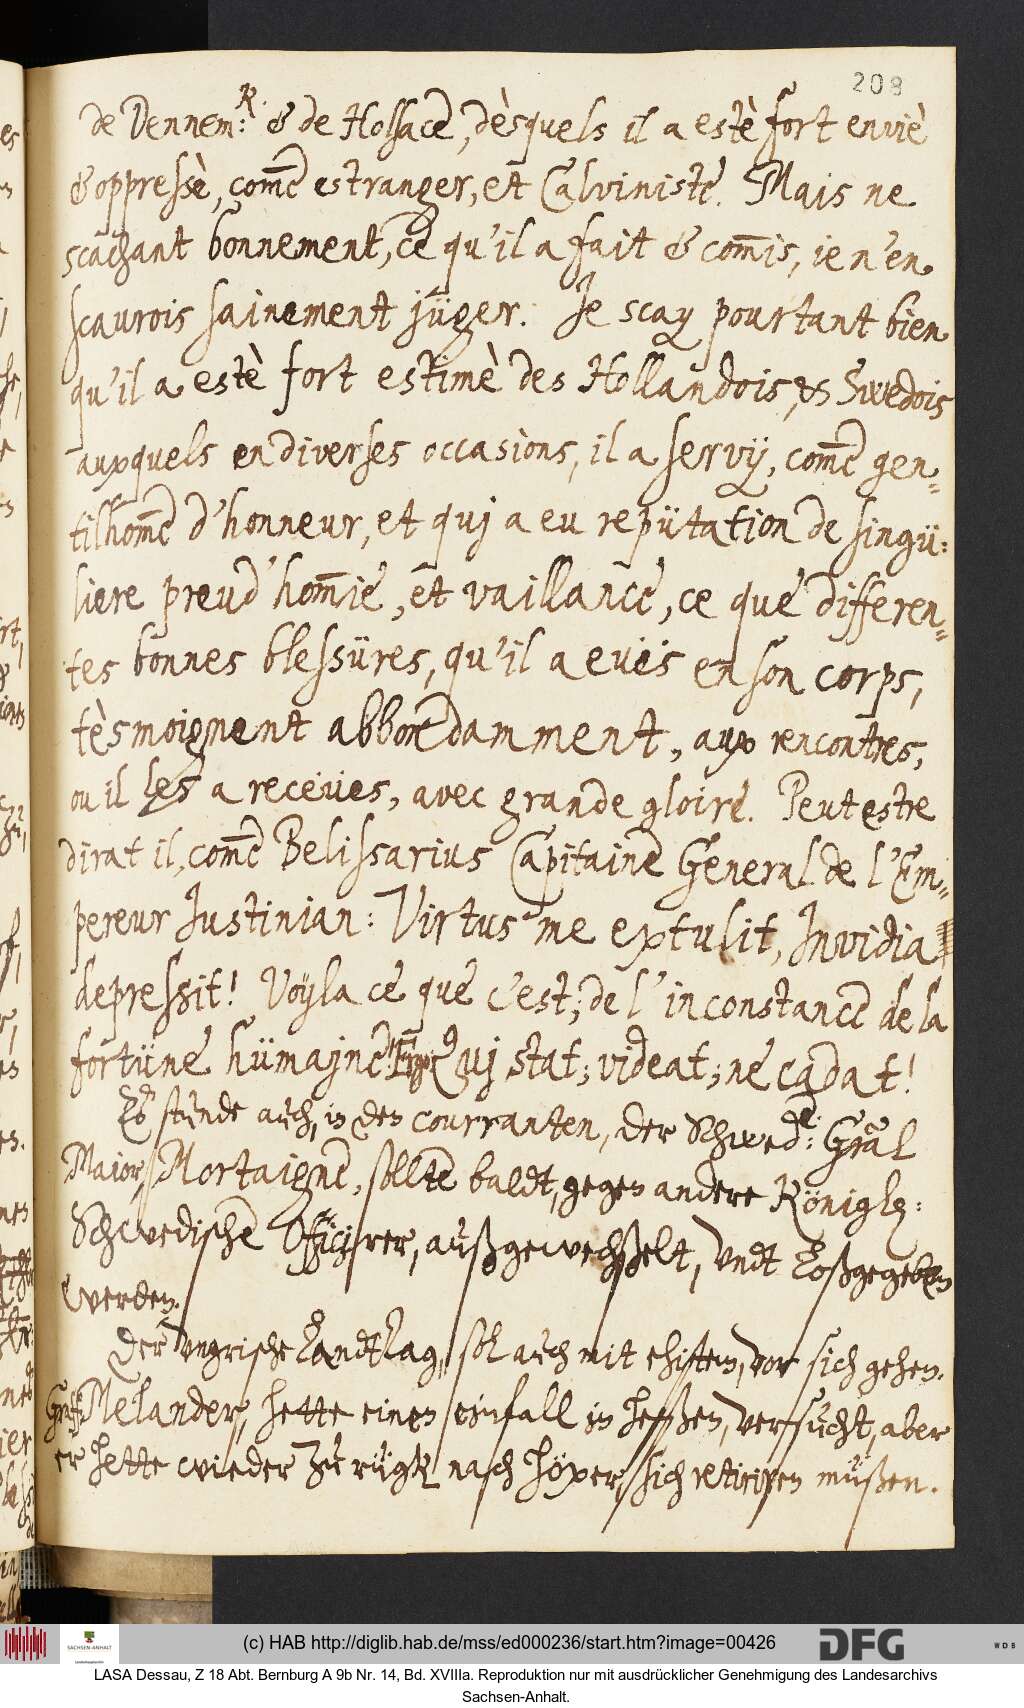 208
de Dennem:R. & de Holsace, dèsquels il a estè fort enviè
& oppressè, com̃e estranger, et Calviniste. Mais ne
scachant bonnement, ce qu'il a fait & com̃is, ie n'en
scaurois sainement jüger. Je scay pourtant bien
qu'il a estè fort estimè des Hollandois, & Swedois
auxquels en diverses occasions, il a servÿ, com̃e gen-
tilhom̃e d'honneur, et quj a eu repütation de singü-
liere preud'hom̃ie, et vaillance, ce que differen-
tes bonnes blessüres, qu'il a eües en son corps,
tèsmoignent abbondamment, aux rencontres,
ou il les a receües, avec grande gloire. Peut estre
dirat il, com̃e Belissarius Capitaine General de l'Em-
pereur Justinian: Virtus me extulit, Invidia
depressit! Voÿla ce que c'est, de l'inconstance de la
fortüne hümajne! Quj stat; videat; ne cadat!
Es stunde auch, in den courranten, der Schwed: Gral
Maior, Mortaigne, sollte baldt, gegen andere Königl:
Schwedische Officirer, außgewechßelt, vndt loßgegeben
werden.
Der vngrische Landtag, sol auch mit ehisten, vor sich gehen.
Graf Melander, hette einen einfall in Heßen, versucht, aber
er hette wieder zu rügk nach Höxer, sich retiriren müßen.
(c) HAB http://diglib.hab.de/mss/ed000236/start.htm?image=00426
DFG
WDB
SACHSEN-ANHALT
LASA Dessau, Z 18 Abt. Bernburg A 9b Nr. 14, Bd. XVIIIa. Reproduktion nur mit ausdrücklicher Genehmigung des Landesarchivs
Sachsen-Anhalt.